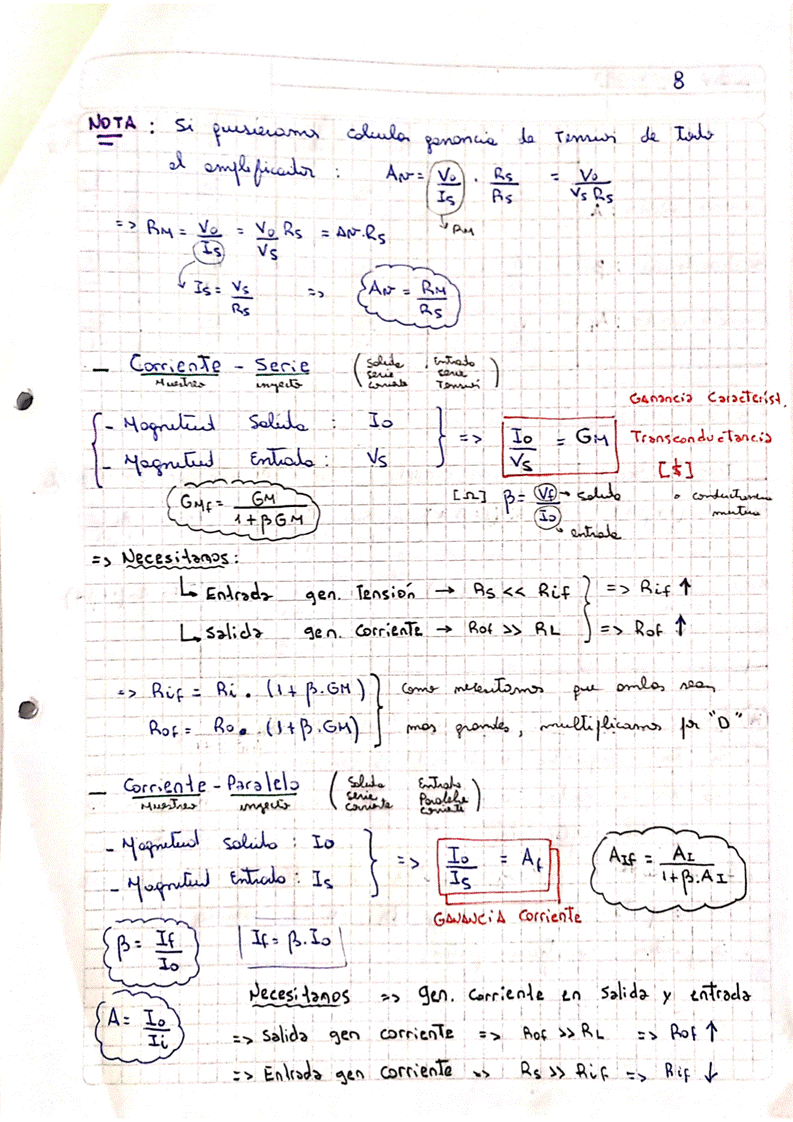 8
NOTA : Si quisieramos calcular ganancia de Tensión de Todo
el amplificador : Av = Vo/Is . Rs/Rs = Vo/Vs Rs
↳ RM
=> RM = Vo/Is = Vo/Vs Rs = Av.Rs
↳ Is = Vs/Rs => Av = RM/Rs
- Corriente - Serie (Salida serie corriente , Entrada serie Tensión)
Muestreo inyecto
Ganancia Caracterist.
- Magnitud Salida : Io
- Magnitud Entrada : Vs
=> Io/Vs = GM Transconductancia
[$]
GMf = GM/1+βGM
[Ω] β = Vf/Io → salida
↳ entrada
• conductancia mutua
=> Necesitamos :
↳ Entrada gen. Tensión → Rs << Rif => Rif ↑
↳ Salida gen. Corriente → Rof >> RL => Rof ↑
=> Rif = Ri . (1 + β.GM) como necesitamos que ambas sean
Rof = Ro . (1 + β.GM) mas grandes, multiplicamos por "D"
- Corriente - Paralelo (Salida serie corriente Entrada Paralelo corriente)
Muestreo inyecto
- Magnitud salida : Io
- Magnitud Entrada : Is
=> Io/Is = Af
AIf = AI/1+β.AI
GANANCIA Corriente
β = If/Io
If = β.Io
Necesitamos => gen. Corriente en Salida y entrada
A = Io/Ii
=> Salida gen corriente => Rof >> RL => Rof ↑
=> Entrada gen corriente => Rs >> Rif => Rif ↓